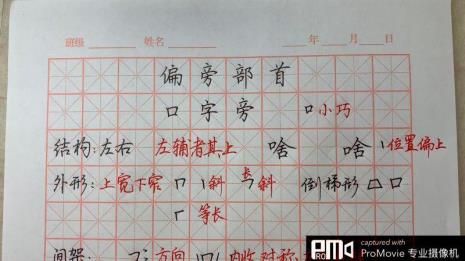 班级 姓名 年 月 日
偏旁部首
口字旁 口小巧
结构:左右 左辅者其上 啥 啥 位置偏上
外形:上宽下窄 斜 长斜 倒梯形 口 口
等长
间架: 方向 内收对称
captured with
PRO
ProMovie 专业摄像机